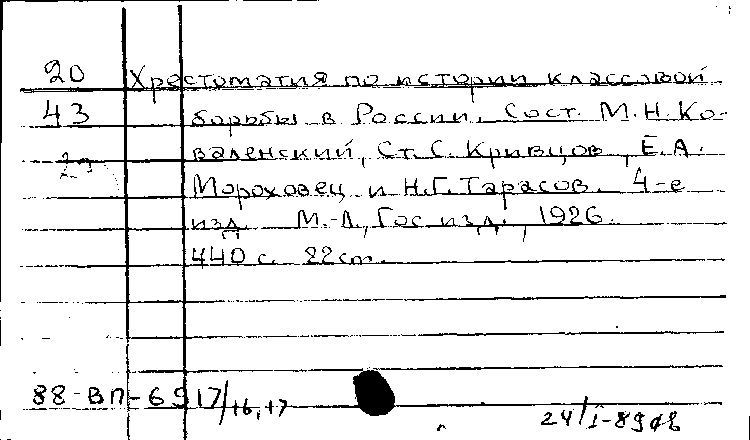 20 Хрестоматия по истории классовой
43 борьбы в России. Сост. М.Н.Ко-
валенский, Ст.С.Кривцов, Е.А.
Мороховец и Н.Г.Тарасов. 4-е
изд. М.-Л., Гос.изд., 1926.
440 с. 22 cm.
88-ВП-6917/16,17
24/I-89